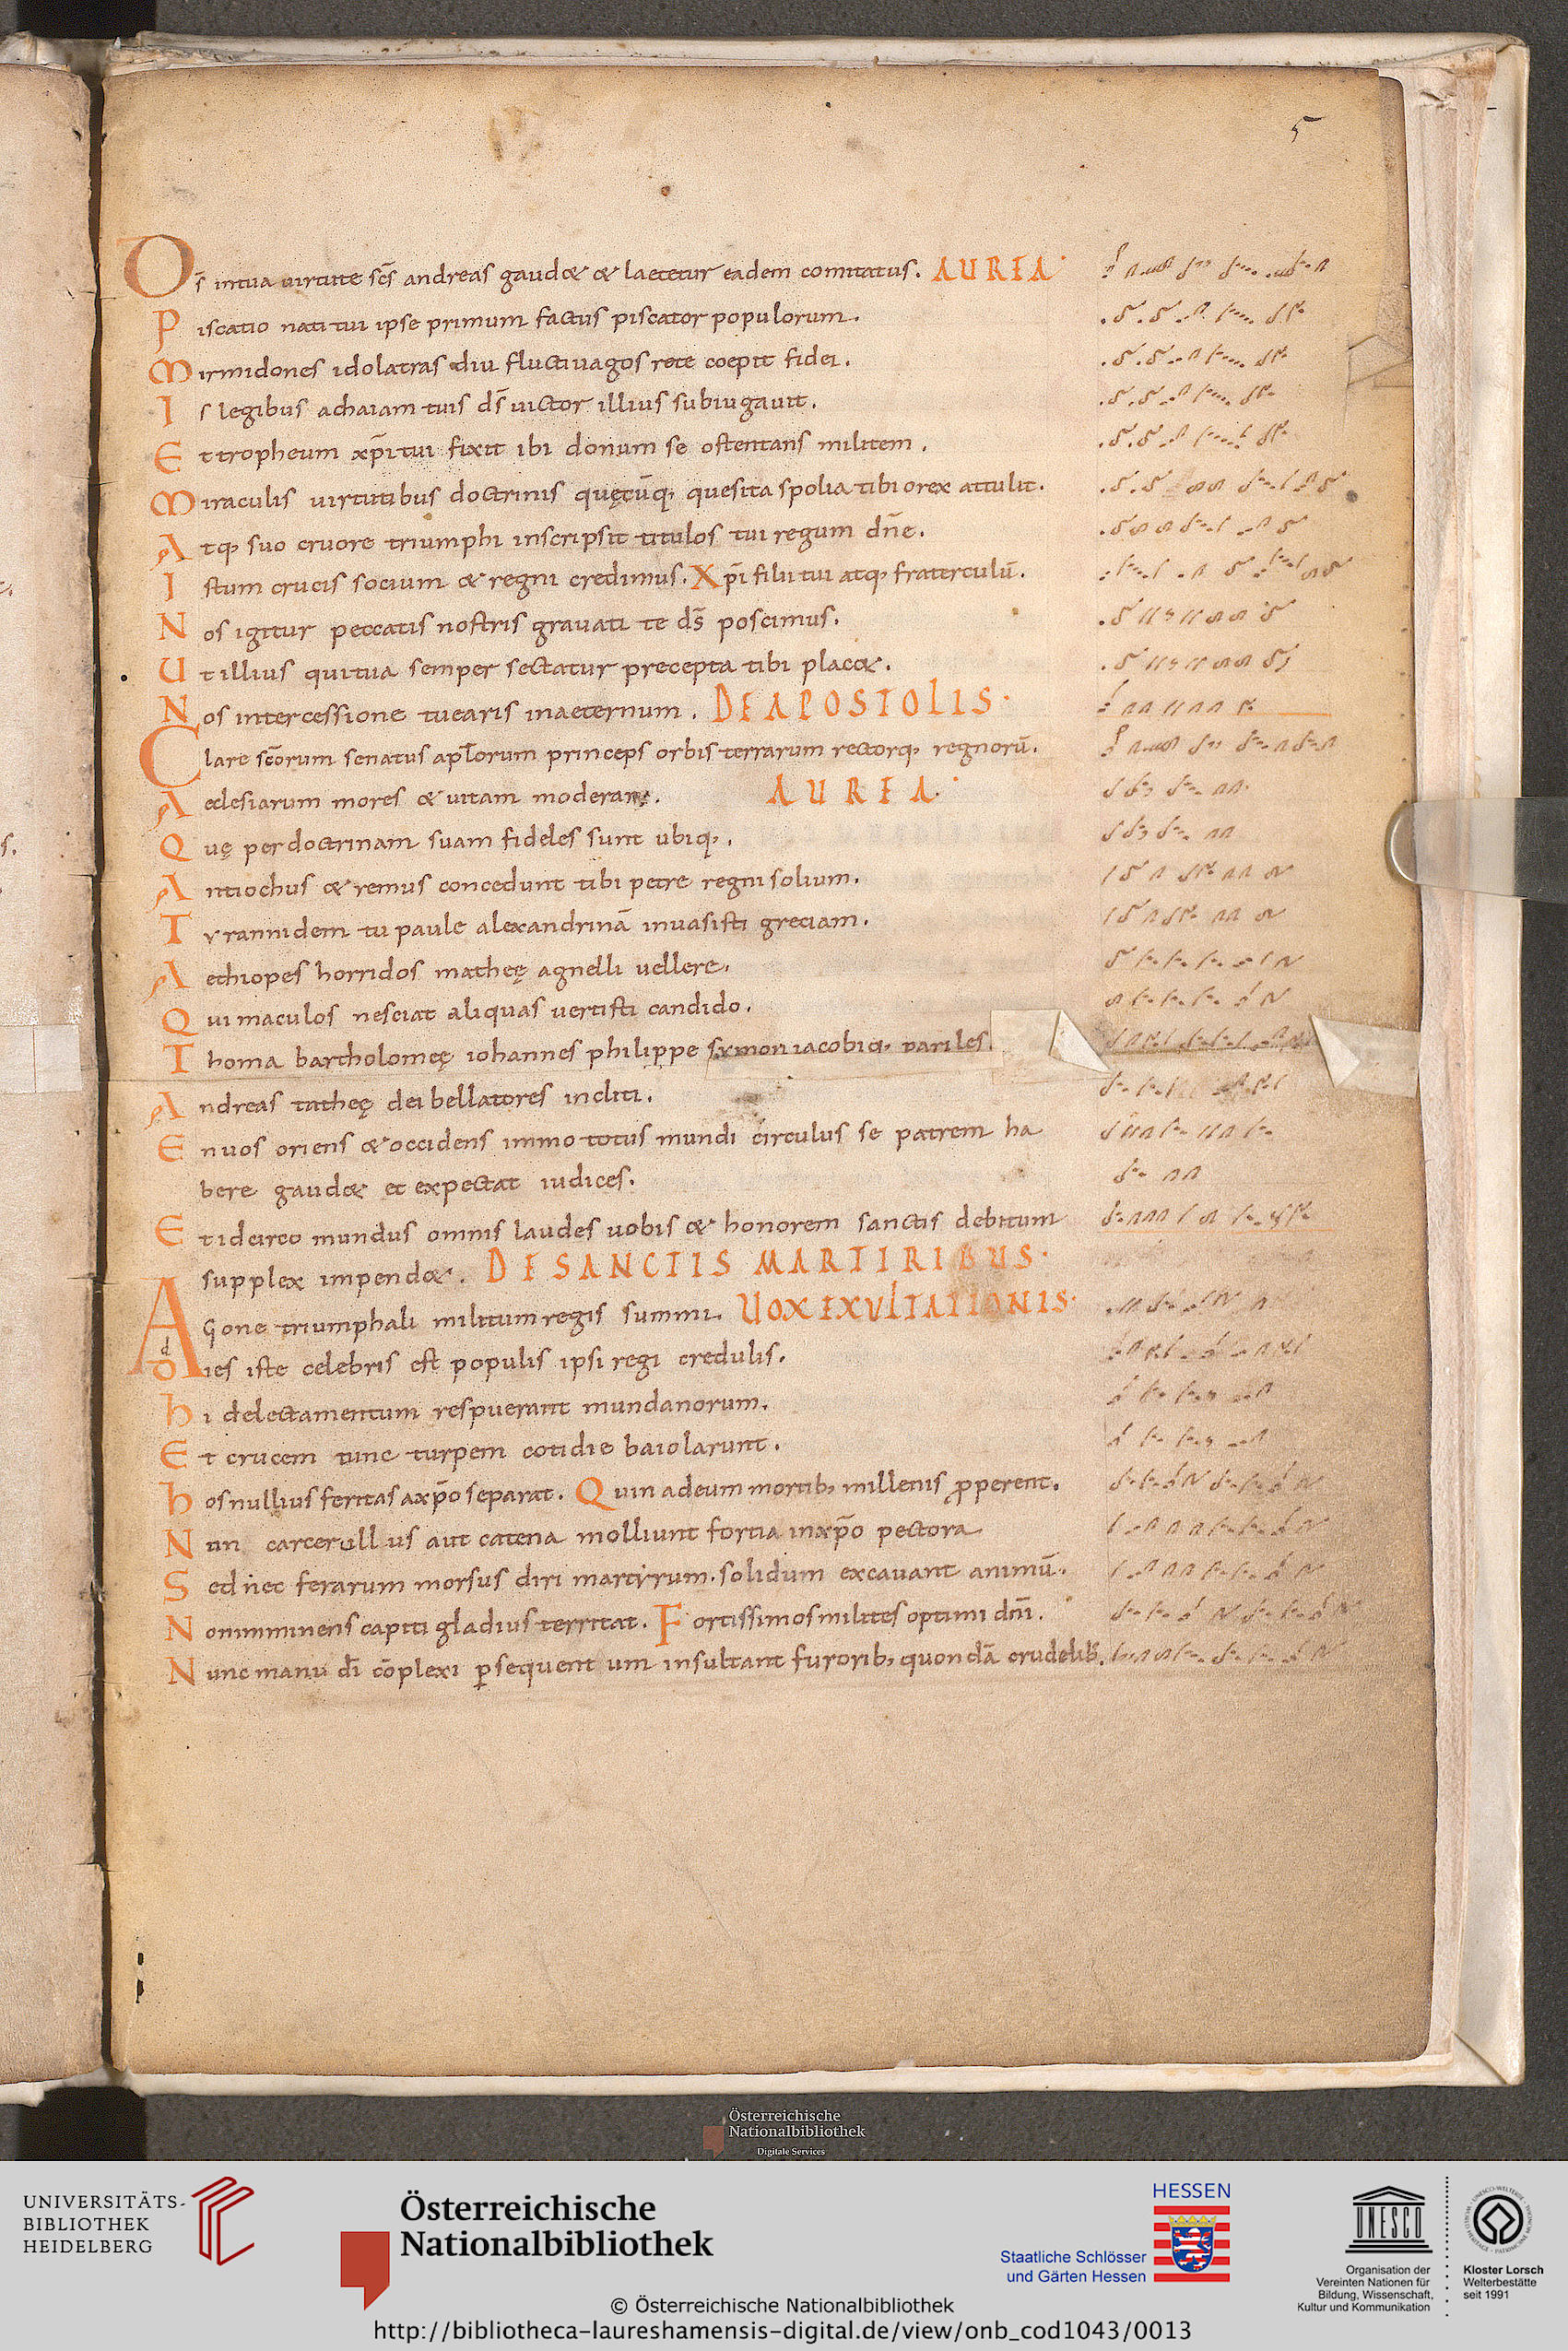 5
Ds̄ intua uirtute sc̄s andreas gaud& & laetetur eadem comitatus. AUREA.
Piscatio nati tui ipse primum factus piscator populorum.
Mirmidones idolatras diu fluctiuagos rete coepit fidei.
Is legibus achaiam tuis ds̄ uictor illius subiugauit.
Et tropheum xp̄i tui fixit ibi donum se ostentans militem.
Miraculis uirtutibus doctrinis quęcūq, quesita spolia tibi orex attulit.
Atq, suo cruore triumphi inscripsit titulos tui regum dn̄e.
Istum crucis socium & regni credimus. Xp̄i filii tui atq, fraterculū.
Nos igitur peccatis nostris grauati te ds̄ poscimus.
Ut illius qui tua semper sectatur precepta tibi plac&.
Nos intercessione tuearis inaeternum. DE APOSTOLIS.
Clare sc̄orum senatus apl̄orum princeps orbis terrarum rectorq, regnorū.
Aeclesiarum mores & uitam moderare. AUREA.
Quę per doctrinam suam fideles sunt ubiq,.
Antiochus & remus concedunt tibi petre regni solium.
Tyrannidem tu paule alexandrinā inuasisti greciam.
Aethiopes horridos matheę agnelli uellere.
Qui maculos nesciat aliquas uertisti candido.
Thoma bartholomeę iohannes philippe symon iacobiq, pariles.
Andreas tatheę dei bellatores incliti.
En uos oriens & occidens immo totus mundi circulus se patrem ha
bere gaud& et expectat iudices.
Et idcirco mundus omnis laudes uobis & honorem sanctis debitum
supplex impend&. DE SANCTIS MARTIRIBUS.
Agone triumphali militum regis summi. UOX EXULTATIONIS.
Dies iste celebris est populis ipsi regi credulis.
Hi delectamentum respuerant mundanorum.
Et crucem tunc turpem cotidie baiolarunt.
Hos nullius feritas axp̄o separat. Quin adeum mortib, millenis ꝓperent.
Non carcer ullus aut catena molliunt fortia inxp̄o pectora
Sed nec ferarum morsus diri martyrum. solidum excauant animū.
Non imminens capiti gladius territat. Fortissimos milites optimi dn̄i.
Nunc manu dī cōplexi ꝑsequentum insultant furorib, quondā crudelib,.
Österreichische
Nationalbibliothek
Digitale Services
UNIVERSITÄTS-
BIBLIOTHEK
HEIDELBERG
Österreichische
Nationalbibliothek
HESSEN
Staatliche Schlösser
und Gärten Hessen
UNESCO
Organisation der
Vereinten Nationen für
Bildung, Wissenschaft,
Kultur und Kommunikation
Kloster Lorsch
Welterbestätte
seit 1991
© Österreichische Nationalbibliothek
http://bibliotheca-laureshamensis-digital.de/view/onb_cod1043/0013